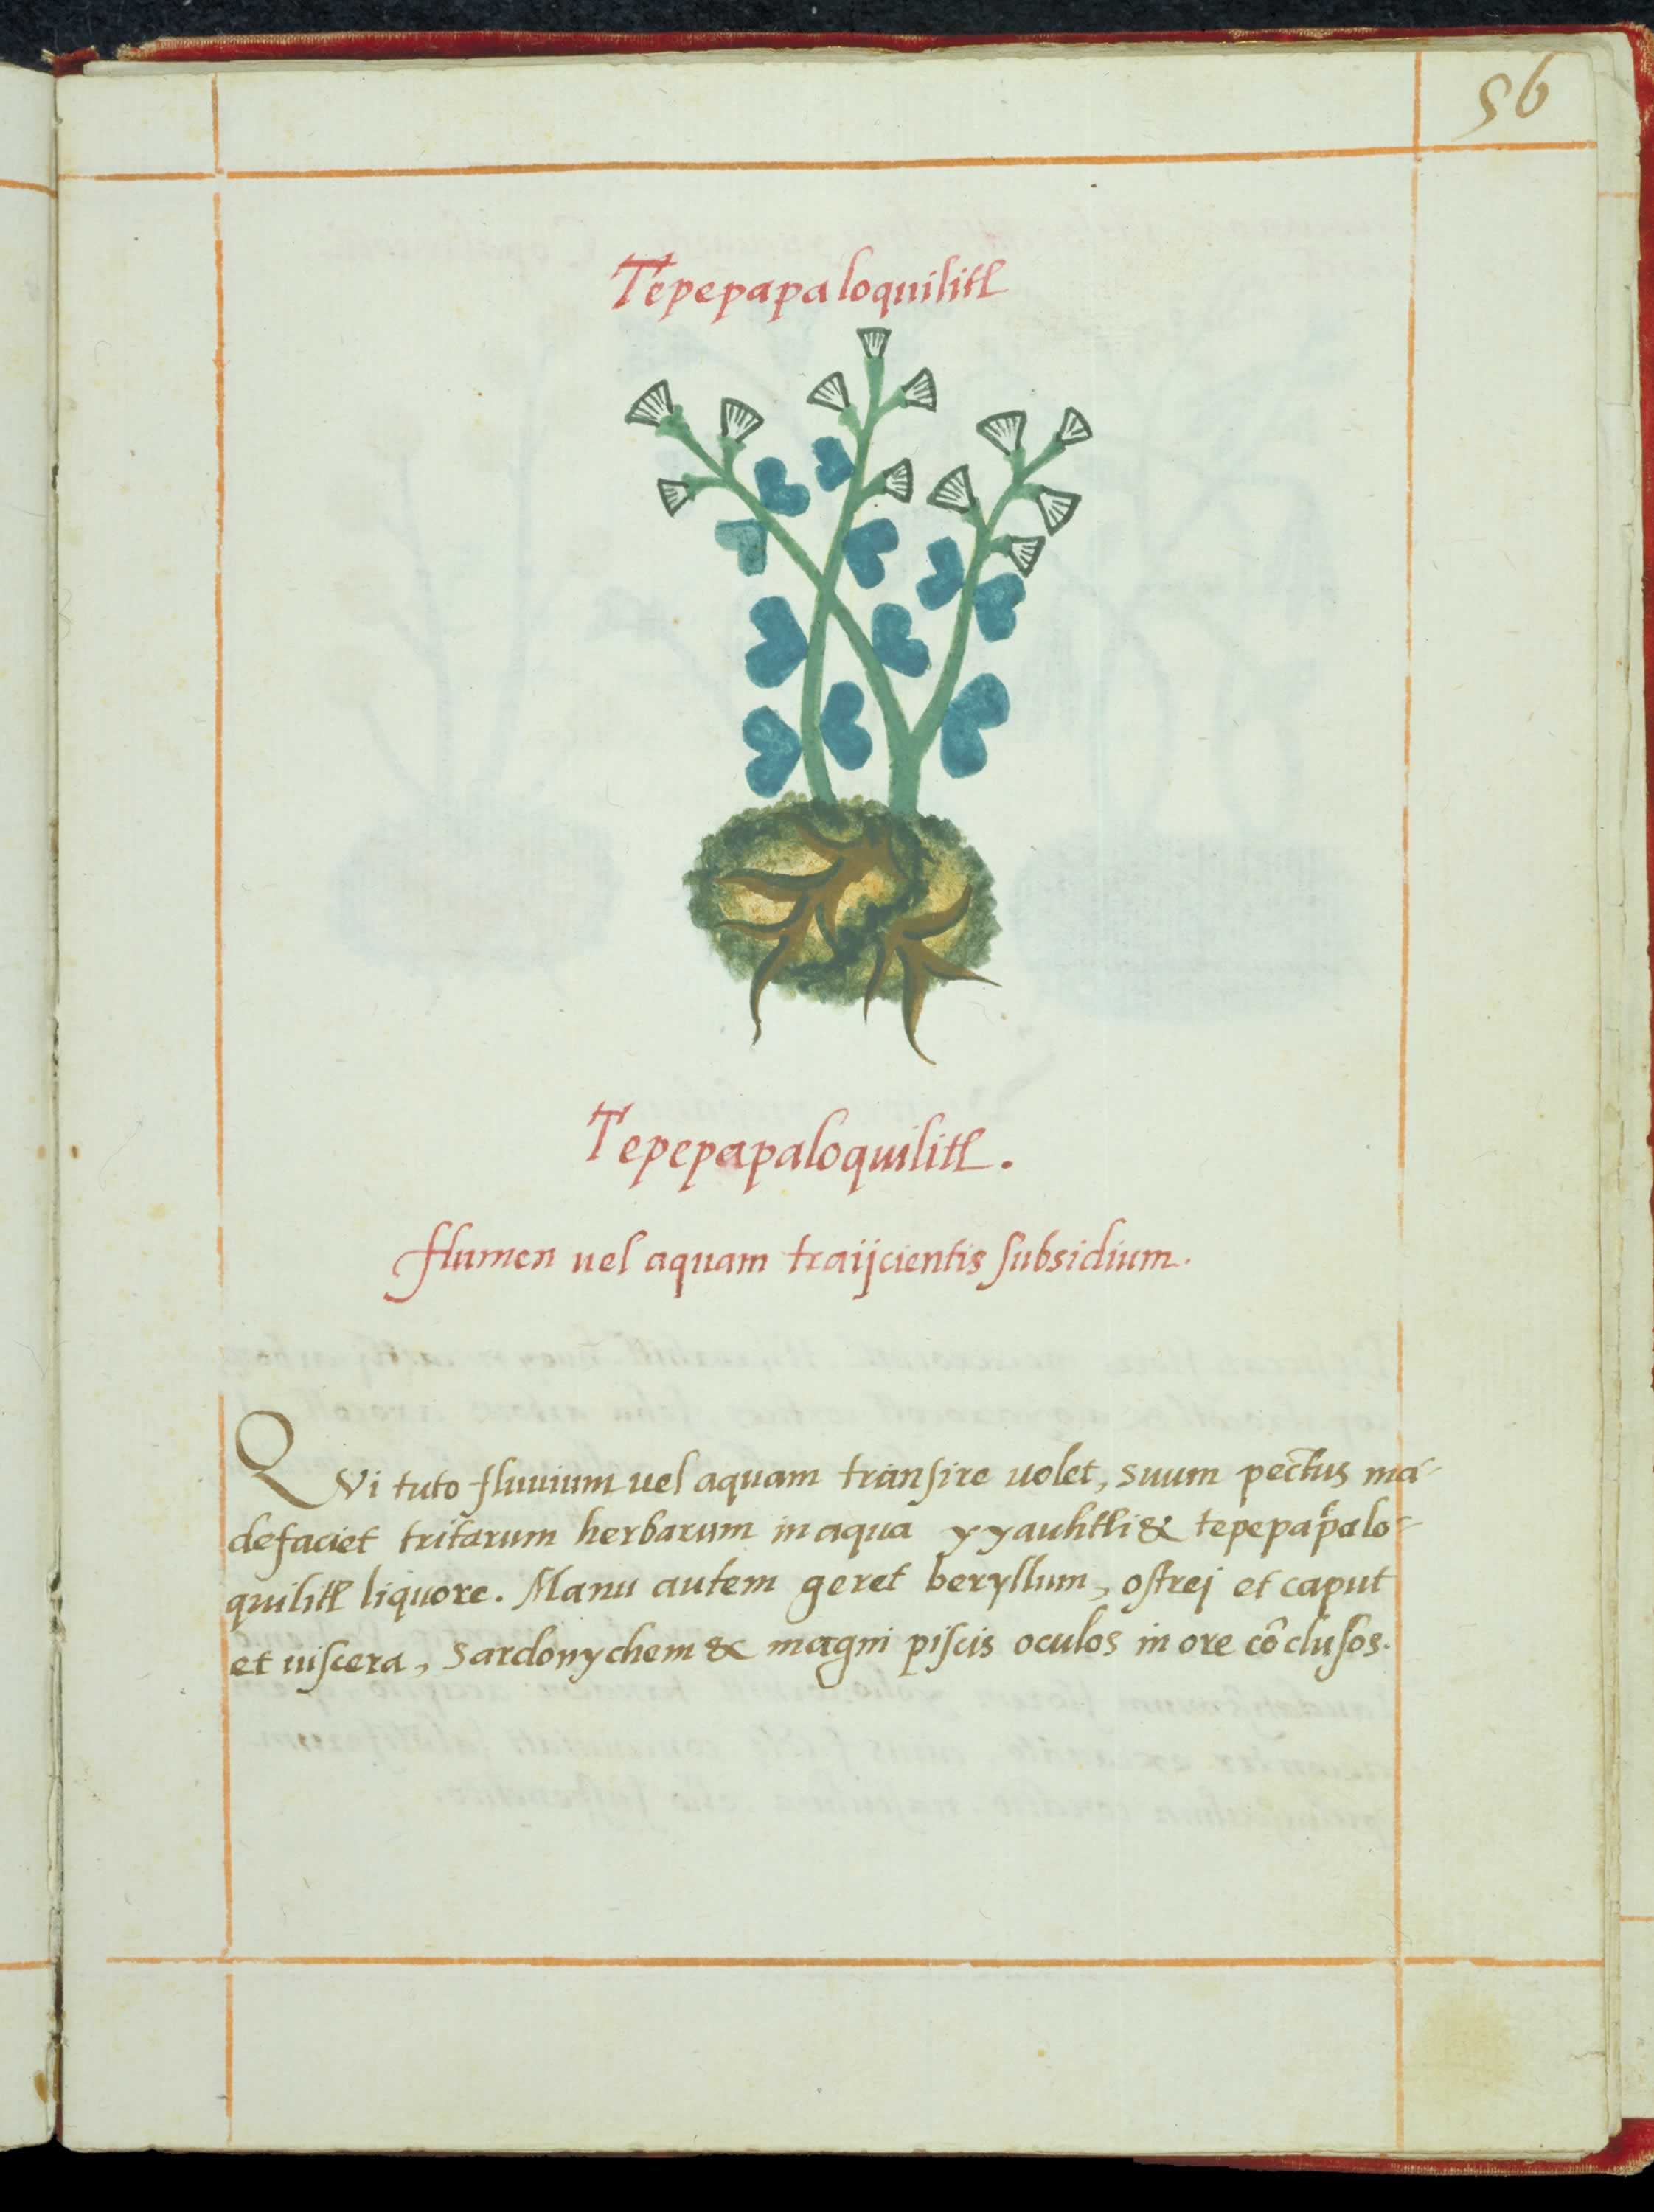 56
Tepepapaloquilitl
Tepepapaloquilitl.
flumen uel aquam traijcientis subsidium.
QVi tuto fluuium uel aquam transire uolet, suum pectus ma-
defaciet tritarum herbarum in aqua yyauhtli & tepepapalo-
quilitl liquore. Manu autem geret beryllum, ostrej et caput
et uiscera, Sardonychem & magni piscis oculos in ore cõclusos.